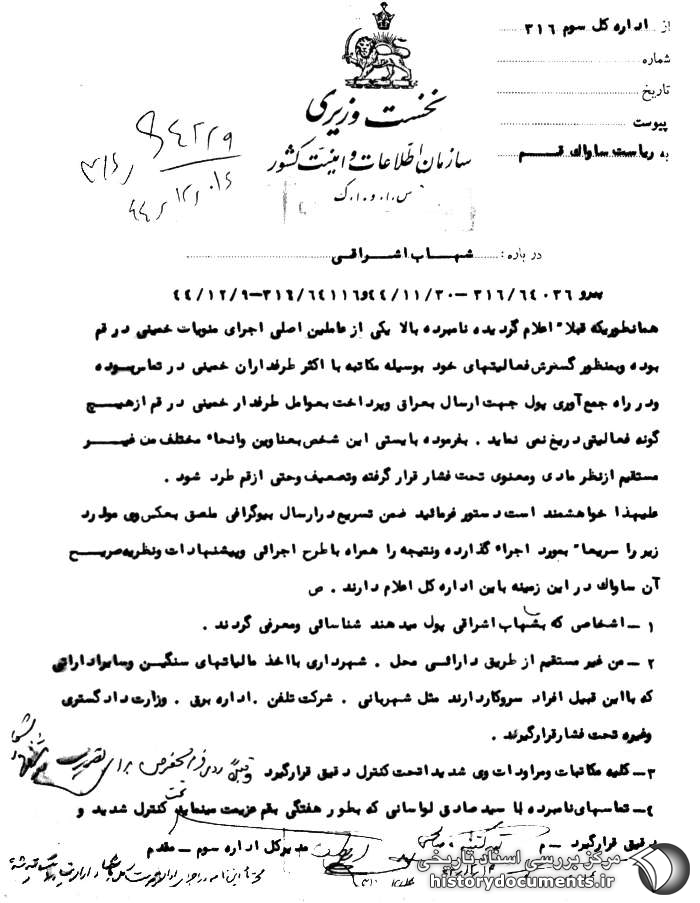 از اداره کل سوم ۳۱۶
شماره
تاریخ
پیوست
به ریاست ساواک قم
نخست وزیری
سازمان اطلاعات و امنیت کشور
س.ا.و.ا.ک
درباره : شهاب اشراقی
پیرو ۳۱۶/۶۴۰۳۶ -۴۴/۱۱/۳۰و۳۱۶/۶۴۱۱۶-۴۴/۱۲/۹
همانطوریکه قبلا" اعلام گردیده نامبرده بالا یکی از عاملین اصلی اجرای منویات خمینی در قم
بوده وبمنظور گسترش فعالیتهای خود بوسیله مکاتبه با اکثر طرفداران خمینی در تماس بوده
ودر راه جمع آوری پول جهت ارسال بعراق وپرداخت بعوامل طرفدار خمینی در قم ازهیچ
گونه فعالیتی دریغ نمی نماید . بفرموده بایستی این شخص بعناوین وانحاء مختلف من غیر
مستقیم ازنظر مادی ومعنوی تحت فشار قرار گرفته وتضعیف وحتی ازقم طرد شود .
علیهذا خواهشمند است دستور فرمائید ضمن تسریع درارسال بیوگرافی ملصق بعکس وی موارد
زیر را سریعا" بمورد اجراء گذارده ونتیجه را همراه باطرح اجرائی وپیشنهادات ونظریه صریح
آن ساواک در این زمینه باین اداره کل اعلام دارند . ص
۱ - اشخاصی که بشهاب اشراقی پول میدهند شناسائی ومعرفی گردند .
۲ - من غیر مستقیم از طریق دارائی محل . شهرداری بااخذ مالیاتهای سنگین وسایراداراتی
که بااین قبیل افراد سروکاردارند مثل شهربانی . شرکت تلفن . اداره برق . وزارت دادگستری
وغیره تحت فشارقرارگیرند .
۳- کلیه مکاتبات ومراودات وی شدیدا تحت کنترل دقیق قرارگیرد
۴- تماسهای نامبرده با سید صادق لواسانی که بطور هفتگی بقم عزیمت مینماید تحت کنترل شدید و
دقیق قرارگیرد - م
مدیرکل اداره سوم - مقدم
مرکز بررسی اسناد تاریخی
historydocuments.ir